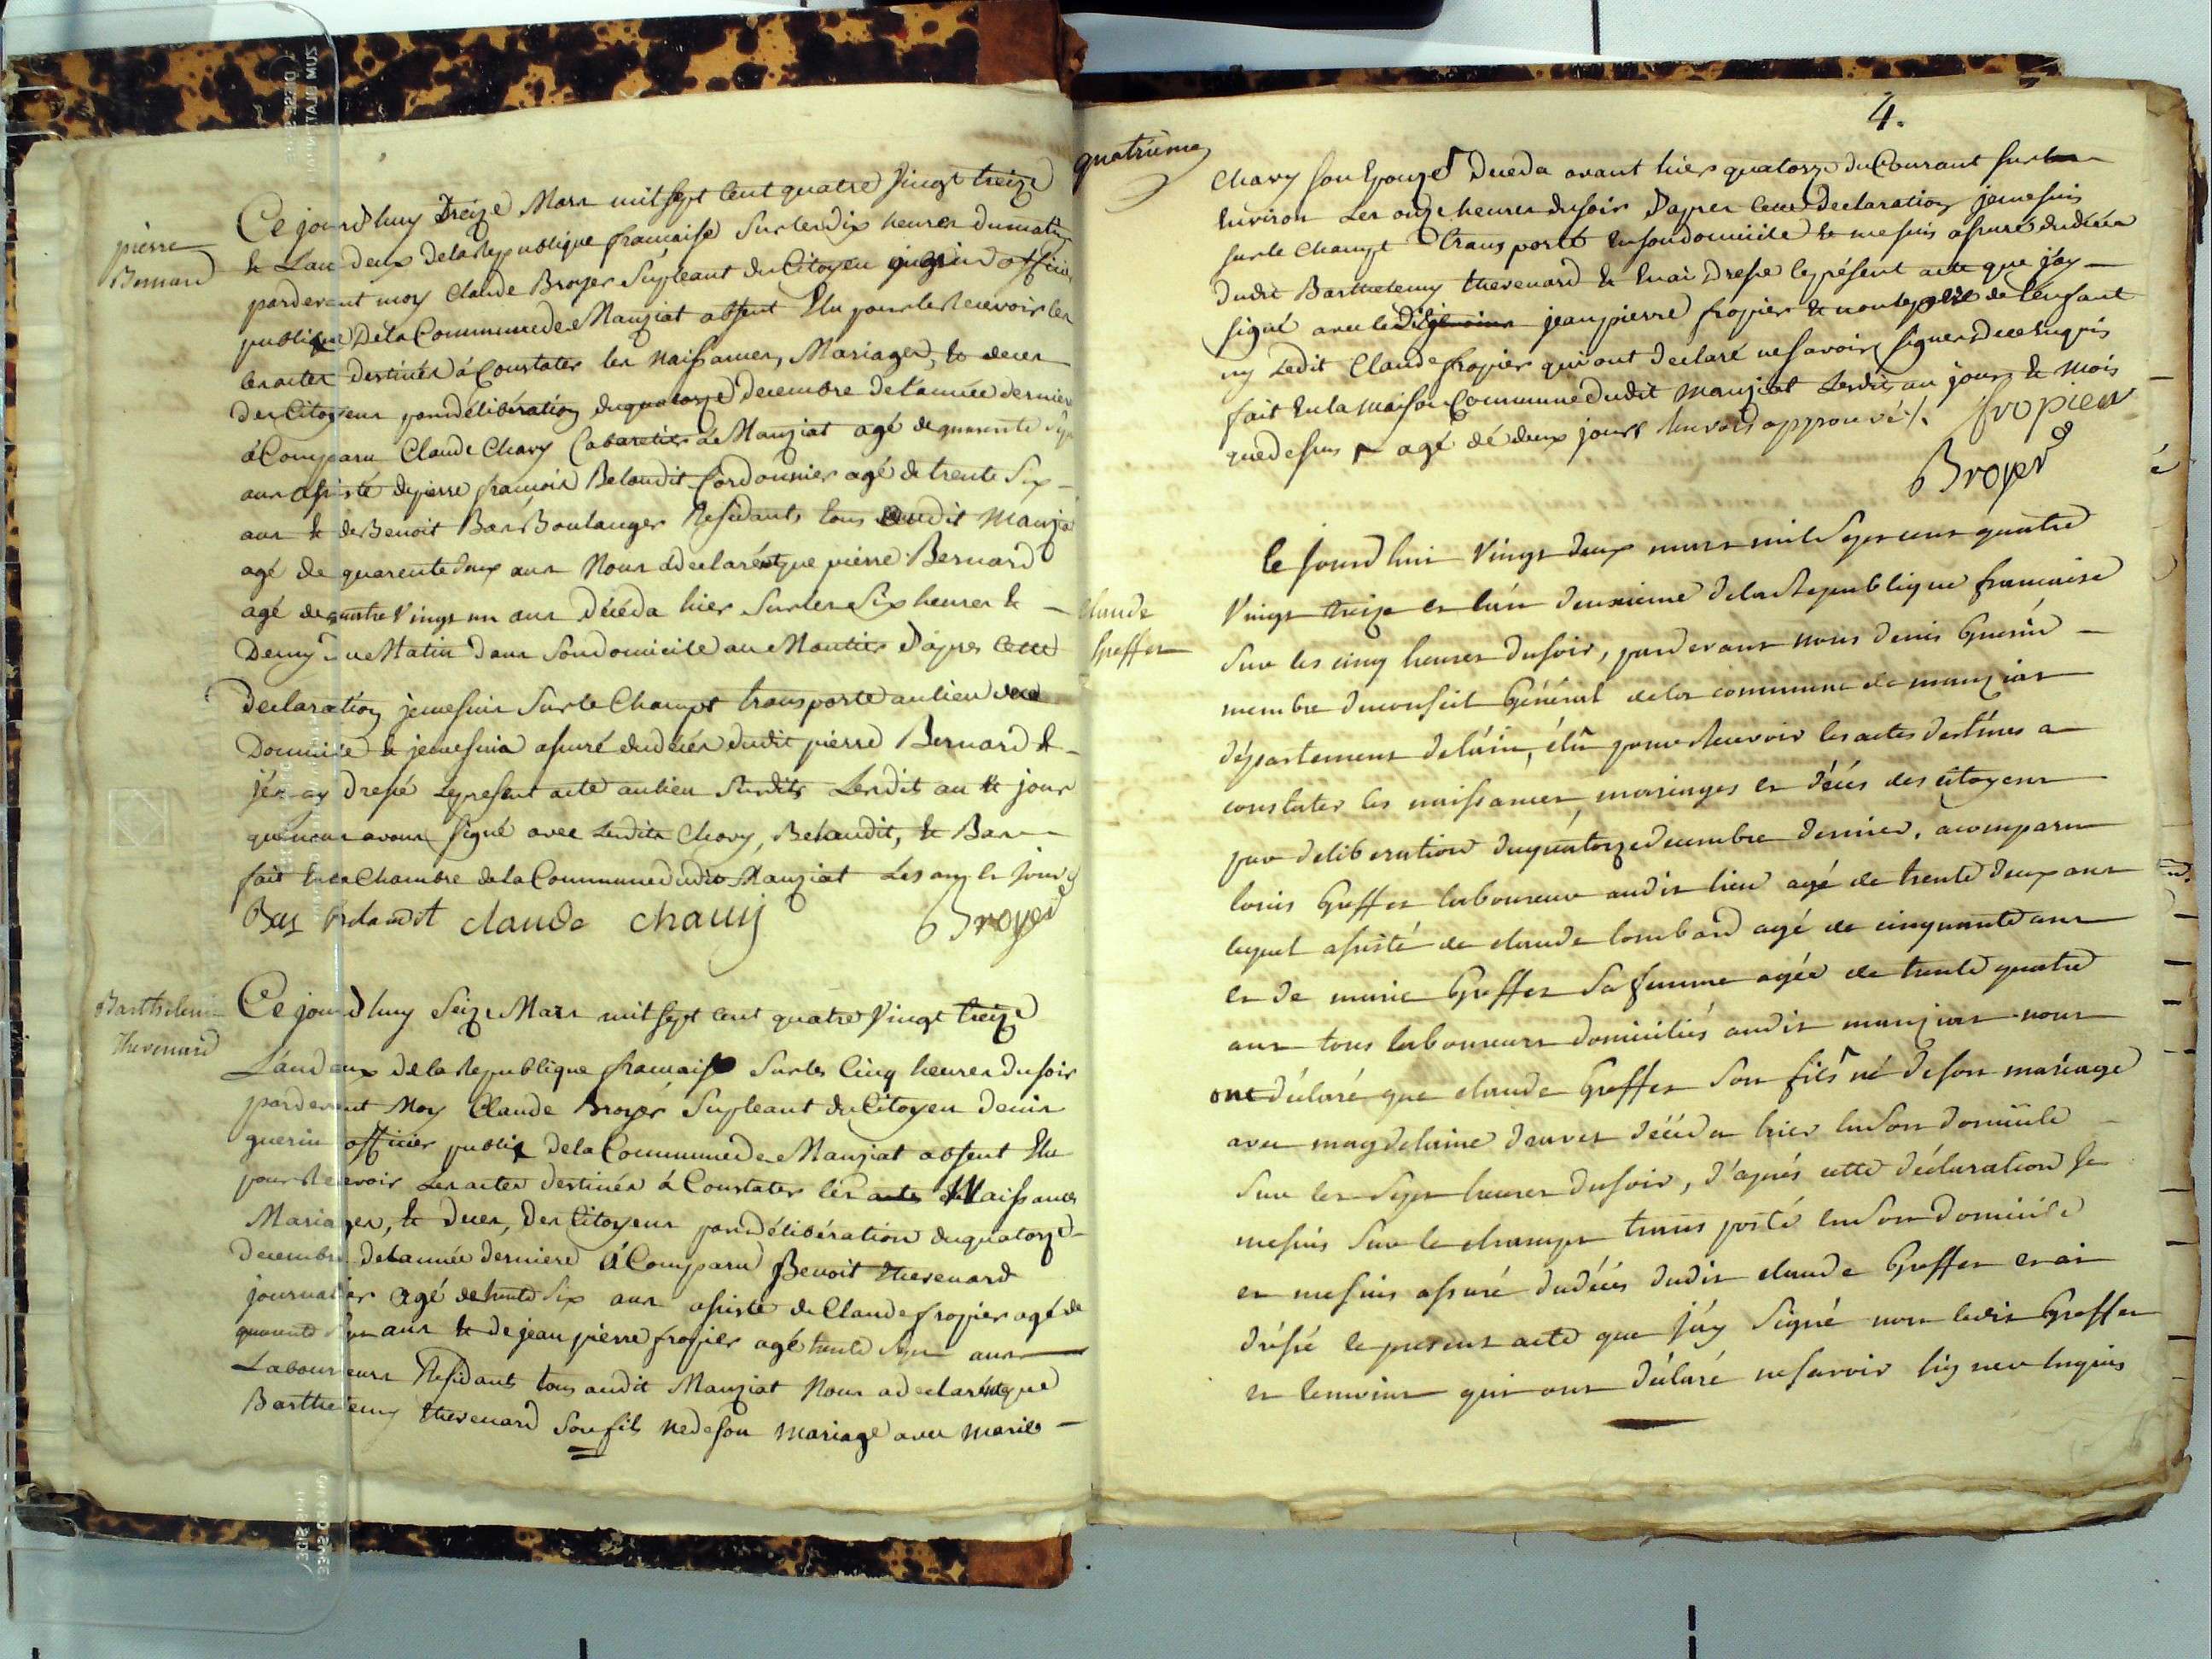 pierre
Bernard
Ce jourd'huy Treize Mars mil sept cent quatre vingt treize
& L'an deux de la Republique francaise sur les dix heures du matin
pardevant moy Claude Broyer supleant du Citoyen guerin officier
publique De la Commune de Manziat absent Elu pour le Recevoir les
les actes destinés à Constater les Naissances, Mariages, & deces
des Citoyens par délibération du quatorze decembre de l'année derniere
à Comparu Claude Chavy Cabaretier de Manziat agé de quarente sept
ans assisté de pierre françois Belaudit Cordonnier agé de trente six
ans & de Benoit Bas Boulanger Residants tous audit Manziat
agé de quarente deux ans Nous a declaré que pierre Bernard
agé de quatre vingt un ans Décéda hier sur les six heures &
Demy du Matin dans son domicile au Moutier D'apres Cette
declaration je me suis sur le Champt transporté au lieu
Domicile & je me suis assuré du décés dudit pierre Bernard &
j'en ay dressé le present acte au lieu susdits Lesdit an & jour
que nous avons signé avec Lesdits Chavy, Belaudit, & Bas
fait en la Chambre de la Commune dudit Manziat Les an & jour
Bas Belaudit claude chauy Broyer
Barthelemi
thevenard
Ce jourd'huy Seize Mars mil sept cent quatre vingt treize
L'an deux de la Republique francaise sur les Cinq heures du soir
pardevant Moy Claude Broyer supleant du Citoyen Denis
guerin officier public de la Commune de Manziat absent Elu
pour Recevoir Les actes destinés à Constater les actes de Naissances
Mariages, & deces, des Citoyens par délibération du quatorze
decembre de l'année derniere à Comparu Benoit thevenard
journalier agé de trente six ans assisté de Claude fropier agé de
quarente sept ans & de jean pierre fropier agé trente sept ans
Laboureurs Residants tous audit Manziat Nous a declaré que
Barthelemy thevenard son fils né de son mariage avec marie
quatrieme
4.
Chavy son Epouze Deceda avant hier quatorze du Courant sur
Environ Les onze heures du soir D'apres cette declaration je me suis
sur le champt transporté en son domicile & me suis assuré du décés
dudit Barthelemy thevenard & En ai Dressé le présent acte que j'ay
signé avec ledit jean pierre fropier & non le pere de l'enfant
ny Ledit Claude fropier qui ont declaré ne savoir signer de ce Enquis
fait En la maison Commune dudit Manziat Lesdits an jours & mois
que dessus agé dé deux jours Renvoi approuvé. fropier
Broyer
Claude
Greffet
Ce jourd'hui vingt deux mars mil sept cent quatre
vingt treize et l'an deuxieme de la Republique francaise
sur les cinq heures du soir, pardevant nous denis Guérin
membre du conseil Général de la commune de manziat
département de l'ain, élû pour Recevoir les actes destinés a
constater les naissances, mariages et décés des citoyens
par deliberation du quatorze decembre dernier, a comparu
louis Greffet laboureur audit lieu agé de trente deux ans
lequel assisté de claude lombard agé de cinquante ans
et de marie Greffet sa femme agée de trente quatre
ans tous laboureurs domiciliés audit manziat nous
ont déclaré que claude Greffet son fils né de son mariage
avec magdelaine décéda hier en son domicile
sur les sept heures du soir, d'aprés cette déclaration je
me suis sur le champt transporté en son domicile
et me suis assuré du décés dudit claude Greffet et ai
dréssé le present acte que j'ay signé non ledit Greffet
et temoins qui ont déclaré ne savoir signer Enquis